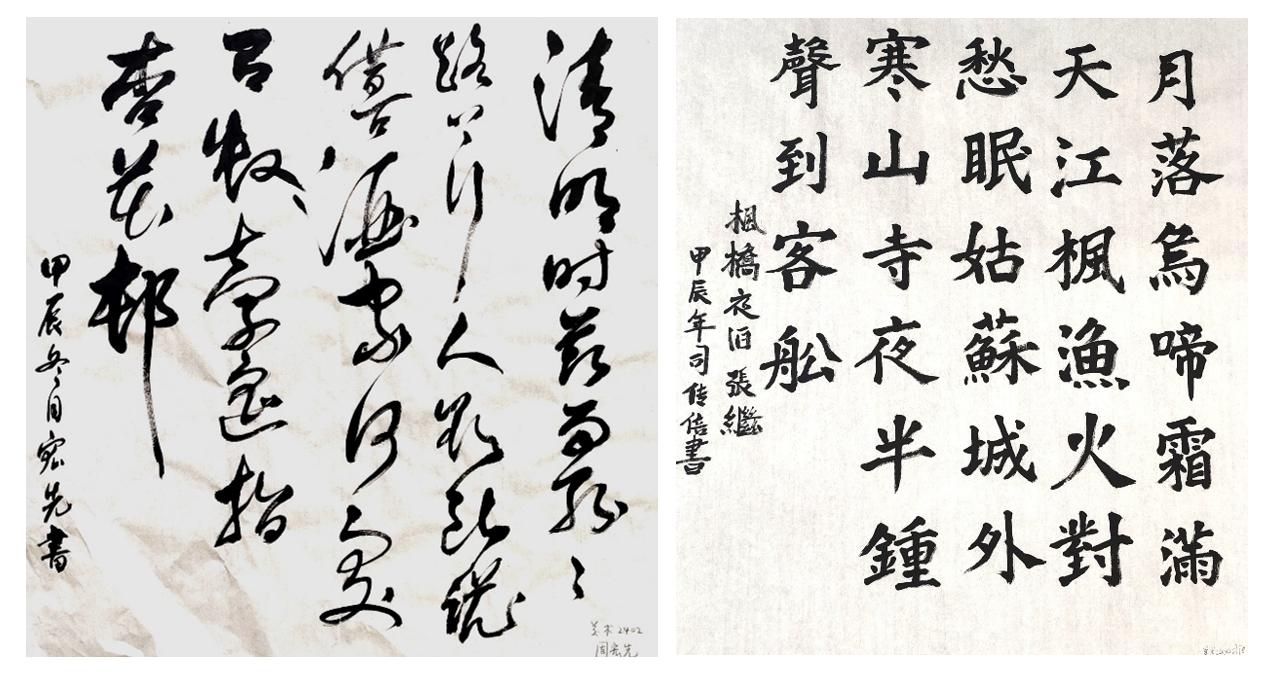 清明时節雨紛々
路上行人欲断魂
借問酒家何處
有牧童遥指
杏花邨
甲辰冬月宏先書
美术2402
周宏先
月落烏啼霜滿
天江楓漁火對
愁眠姑蘇城外
寒山寺夜半鍾
聲到客舩
楓橋夜泊 張繼
甲辰年司传倍書